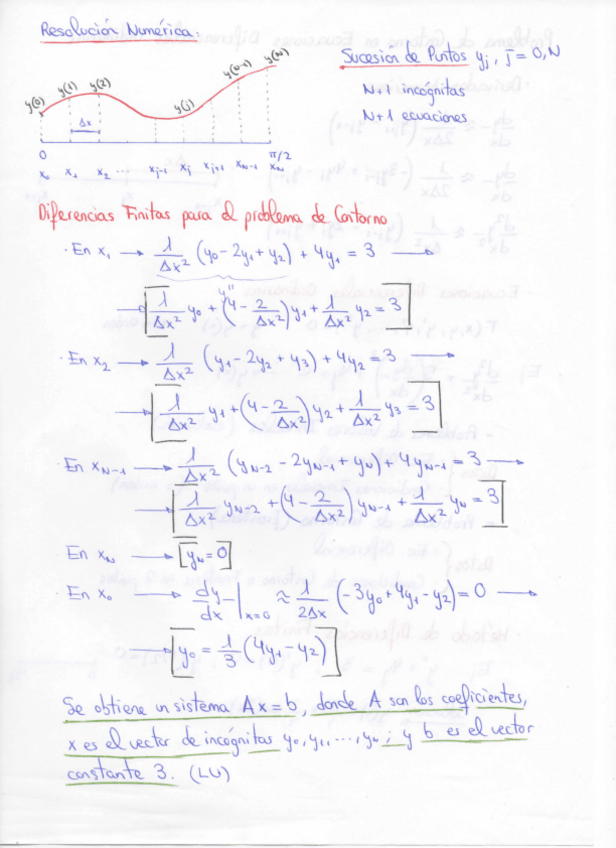 Resolución Numérica.
Sucesión de Puntos yj, j = 0,N
N+1 incógnitas
N+1 ecuaciones
y(0) y(1) y(2) y(j) y(N-1) y(N)
Δx
0 π/2
x₀ x₁ x₂ ... xj-1 xj xj+1 xN-1 xN
Diferencias Finitas para el problema de Contorno
· En x₁ → 1/Δx² (y₀ - 2y₁ + y₂) + 4y₁ = 3 →
y₁''
→ [1/Δx² y₀ + (4 - 2/Δx²) y₁ + 1/Δx² y₂ = 3]
· En x₂ → 1/Δx² (y₁ - 2y₂ + y₃) + 4y₂ = 3 →
→ [1/Δx² y₁ + (4 - 2/Δx²) y₂ + 1/Δx² y₃ = 3]
· En xN-1 → 1/Δx² (yN-2 - 2yN-1 + yN) + 4yN-1 = 3 →
→ [1/Δx² yN-2 + (4 - 2/Δx²) yN-1 + 1/Δx² yN = 3]
· En xN → [yN = 0]
· En x₀ → dy/dx |x=0 ≈ 1/2Δx (-3y₀ + 4y₁ - y₂) = 0 →
→ [y₀ = 1/3 (4y₁ - y₂)]
Se obtiene un sistema Ax = b, donde A son los coeficientes,
x es el vector de incógnitas y₀, y₁, ..., yN; y b es el vector
constante 3. (LU)